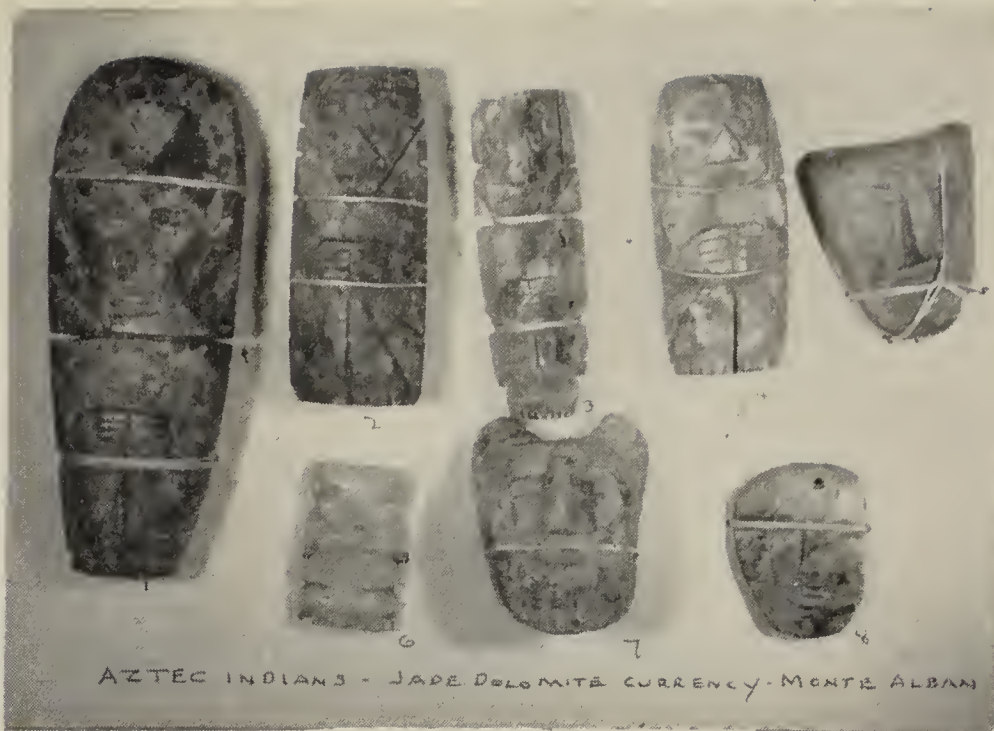 2
3
4
5
1
6
7
8
AZTEC INDIANS - JADE DOLOMITE CURRENCY - MONTE ALBAN